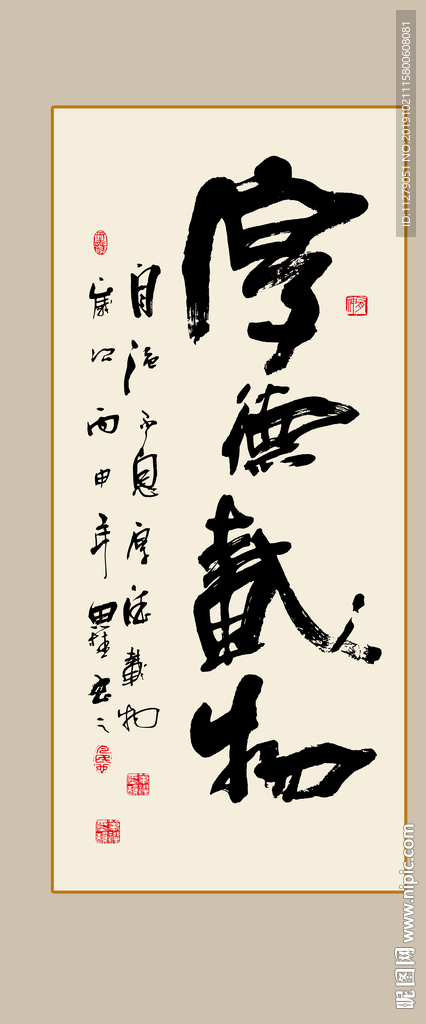 厚德载物
自强不息厚德载物
岁次丙申年
书之
ID:11279051 NO:20191021115800608081
昵图网 www.nipic.com